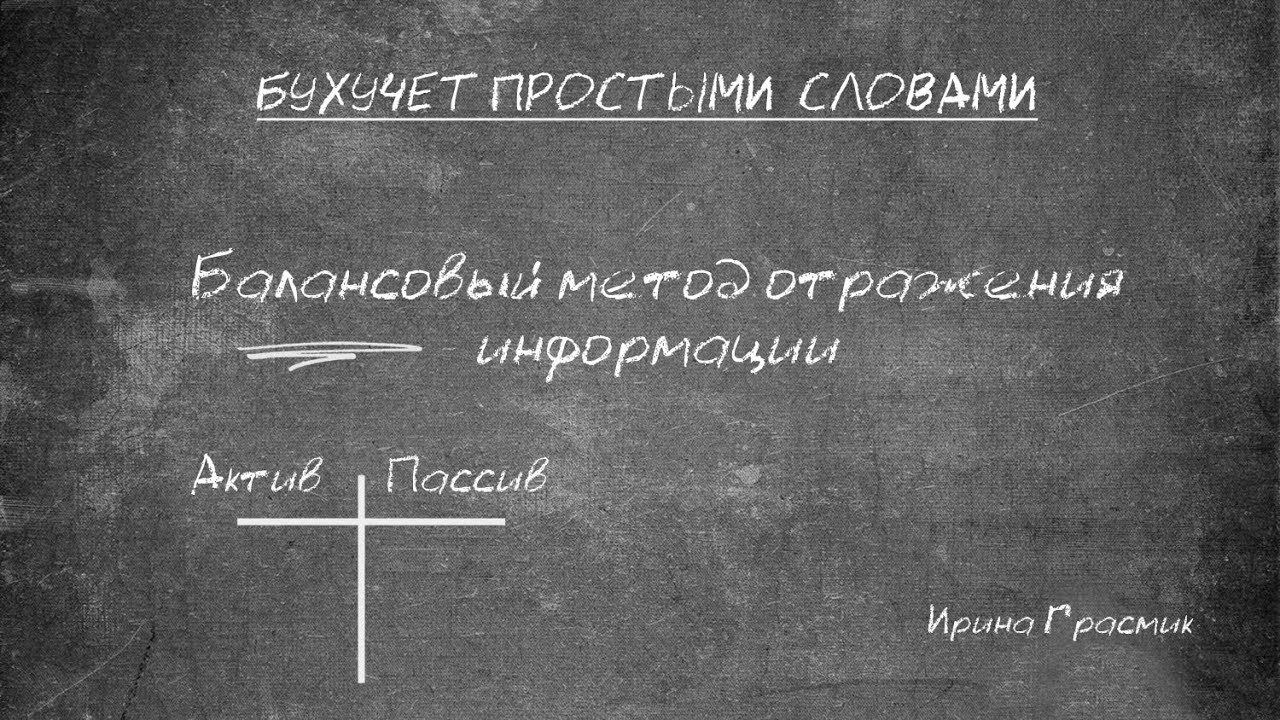 БУХУЧЕТ ПРОСТЫМИ СЛОВАМИ
Балансовый метод отражения
информации
Актив Пассив
Ирина Грасмик